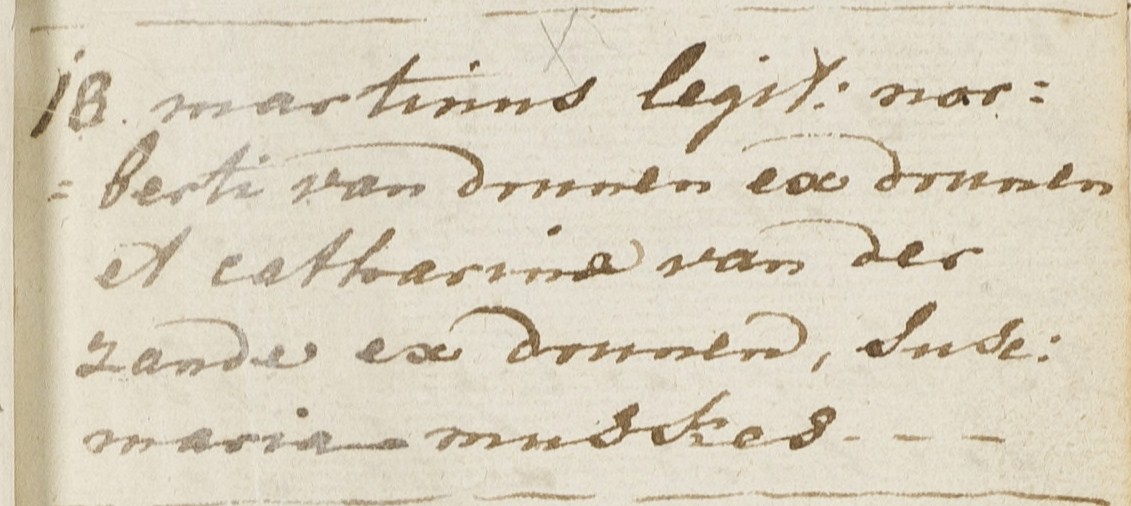 18. martinus legit: nor=
= berti van drunen ex drunen
et catharina van der
zande ex drunen, Susc:
maria muskes - - -